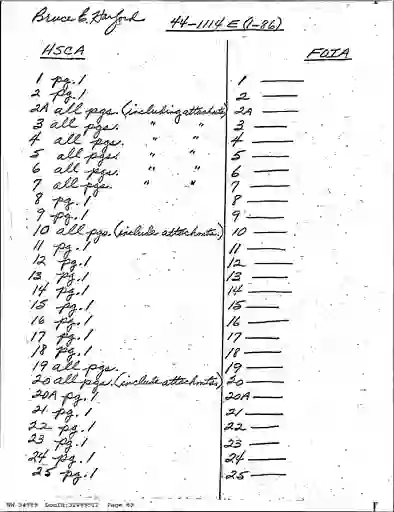 Bruce E. Harford 44-1114 E (1-86)
HSCA FOIA
1 pg. 1 1
2 pg. 1 2
2A all pgs. (including attachmts) 2A
3 all pgs. " " 3
4 all pgs. " " 4
5 all pgs. " " 5
6 all pgs. " " 6
7 all pgs. " " 7
8 pg. 1 8
9 pg. 1 9
10 all pgs. (include attachmts.) 10
11 pg. 1 11
12 pg. 1 12
13 pg. 1 13
14 pg. 1 14
15 pg. 1 15
16 pg. 1 16
17 pg. 1 17
18 pg. 1 18
19 all pgs. 19
20 all pgs. (include attachmts) 20
20A pg. 1 20A
21 pg. 1 21
22 pg. 1 22
23 pg. 1 23
24 pg. 1 24
25 pg. 1 25
Page 63